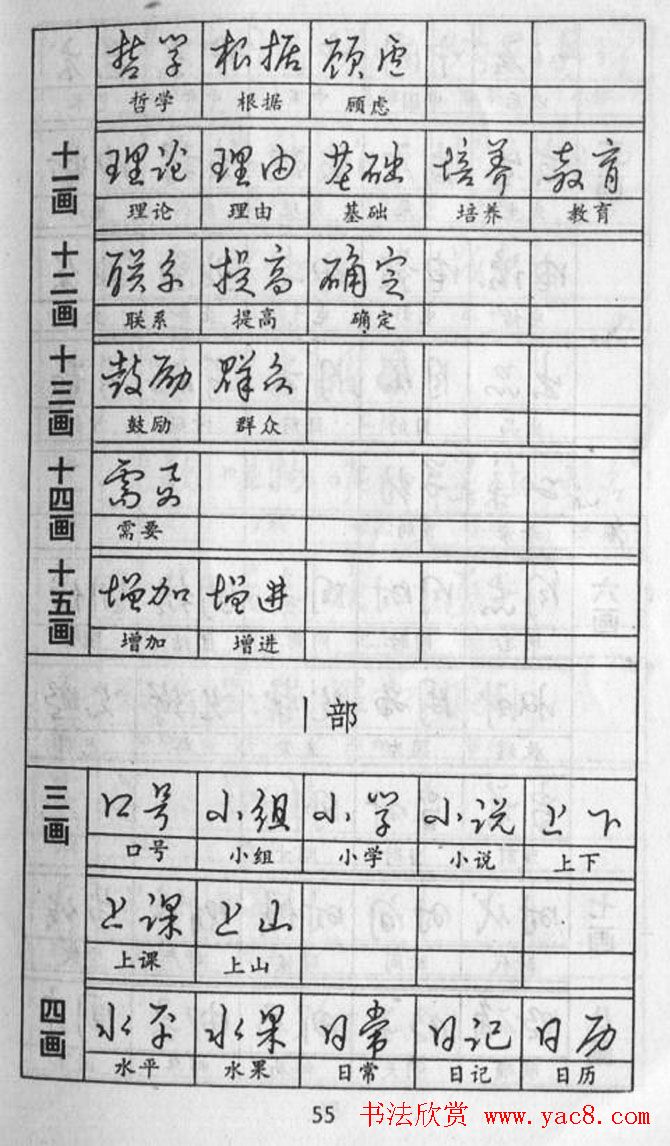 哲学 根据 顾虑
哲学 根据 顾虑
十一画
理论 理由 基础 培养 教育
理论 理由 基础 培养 教育
十二画
联系 提高 确定
联系 提高 确定
十三画
鼓励 群众
鼓励 群众
十四画
需要
需要
十五画
增加 增进
增加 增进
丨部
三画
口号 小组 小学 小说 上下
口号 小组 小学 小说 上下
上课 上山
上课 上山
四画
水平 水果 日常 日记 日历
水平 水果 日常 日记 日历
55
书法欣赏 www.yac8.com